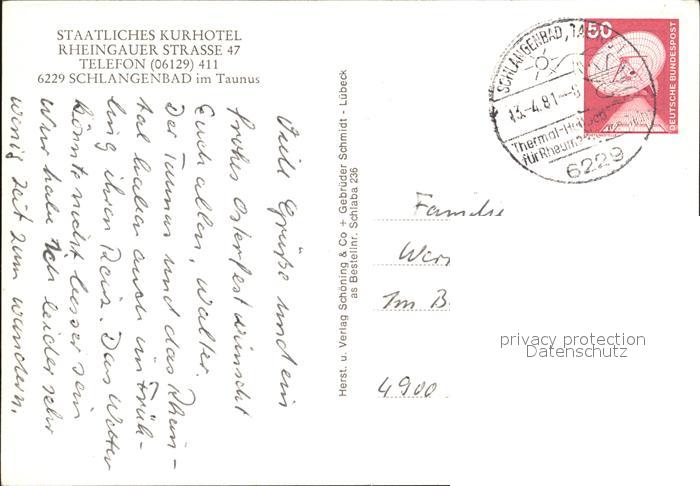 STAATLICHES KURHOTEL
RHEINGAUER STRASSE 47
TELEFON (06129) 411
6229 SCHLANGENBAD im Taunus
Viele Grüße und ein
frohes Osterfest wünscht
Euch allen, Walter.
Der Taunus und das Rhein-
tal haben auch im Früh-
ling ihren Reiz. Das Wetter
könnte nicht besser sein
nur habe ich leider sehr
wenig Zeit zum wandern.
Herst. u. Verlag Schöning & Co + Gebrüder Schmidt - Lübeck
as Bestellnr. Schlaba 236
SCHLANGENBAD,
13.-4.81-
Thermal-
für Rheuma
6229
50
DEUTSCHE BUNDESPOST
Familie
Wer
Im B
4900
privacy protection
Datenschutz